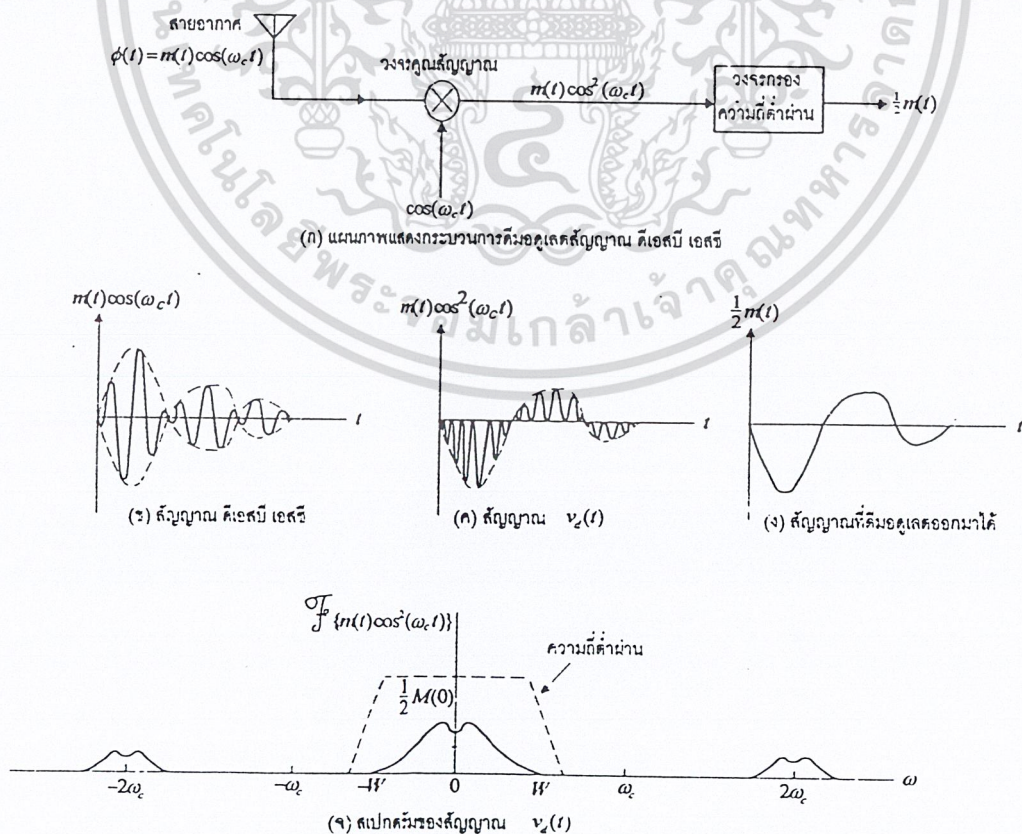 สายอากาศ
ϕ(t)=m(t)cos(ω_c t)
วงจรคูณสัญญาณ
m(t)cos²(ω_c t)
วงจรกรอง
ความถี่ต่ำผ่าน
½m(t)
cos(ω_c t)
(ก) แผนภาพแสดงกระบวนการดีมอดูเลตสัญญาณ ดีเอสบี เอสซี
พระจอมเกล้าเจ้าคุณทหาร
m(t)cos(ω_c t)
m(t)cos²(ω_c t)
½m(t)
t
t
t
(ข) สัญญาณ ดีเอสบี เอสซี
(ค) สัญญาณ v_d(t)
(ง) สัญญาณที่ดีมอดูเลตออกมาได้
ℱ{m(t)cos²(ω_c t)}
ความถี่ต่ำผ่าน
½M(0)
−2ω_c −ω_c −W 0 W ω_c 2ω_c ω
(จ) สเปกตรัมของสัญญาณ v_d(t)